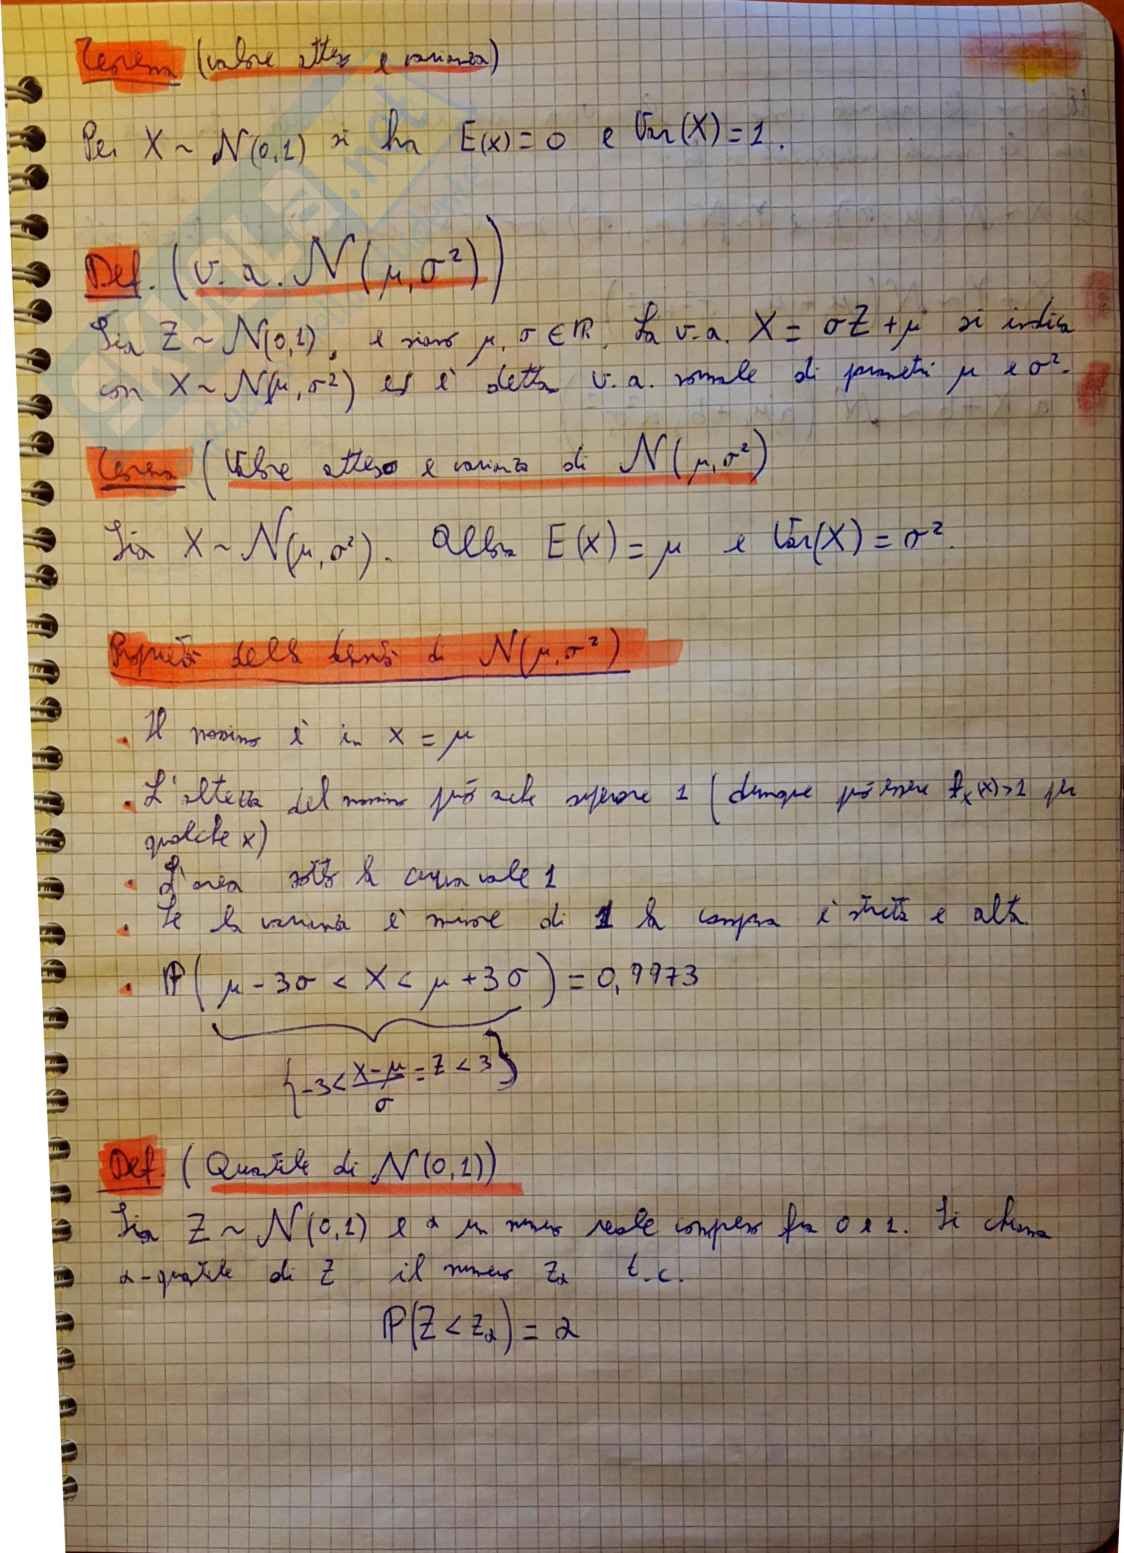 Teorema (valore atteso e varianza)
Per X ~ N(0,1) si ha E(X) = 0 e Var(X) = 1.
Def. (v.a. N(μ, σ²))
Sia Z ~ N(0,1), e siano μ, σ ∈ ℝ. La v.a. X = σZ + μ si indica
con X ~ N(μ, σ²) ed è detta v.a. normale di parametri μ e σ².
Teorema (Valore atteso e varianza di N(μ, σ²)
Sia X ~ N(μ, σ²). Allora E(X) = μ e Var(X) = σ².
Proprietà della densità di N(μ, σ²)
• Il massimo è in x = μ
• L'altezza del massimo può anche superare 1 (dunque può essere fₓ(x)>1 per
qualche x)
• L'area sotto la curva vale 1
• Se la varianza è minore di 1 la campana è stretta e alta
• ℙ(μ - 3σ < X < μ + 3σ) = 0,9973
{-3 < (X-μ)/σ = Z < 3}
Def. (Quantile di N(0,1))
Sia Z ~ N(0,1) e α un numero reale compreso fra 0 e 1. Si chiama
α-quantile di Z il numero zα t.c.
ℙ(Z < zα) = α
SKUOLA.net